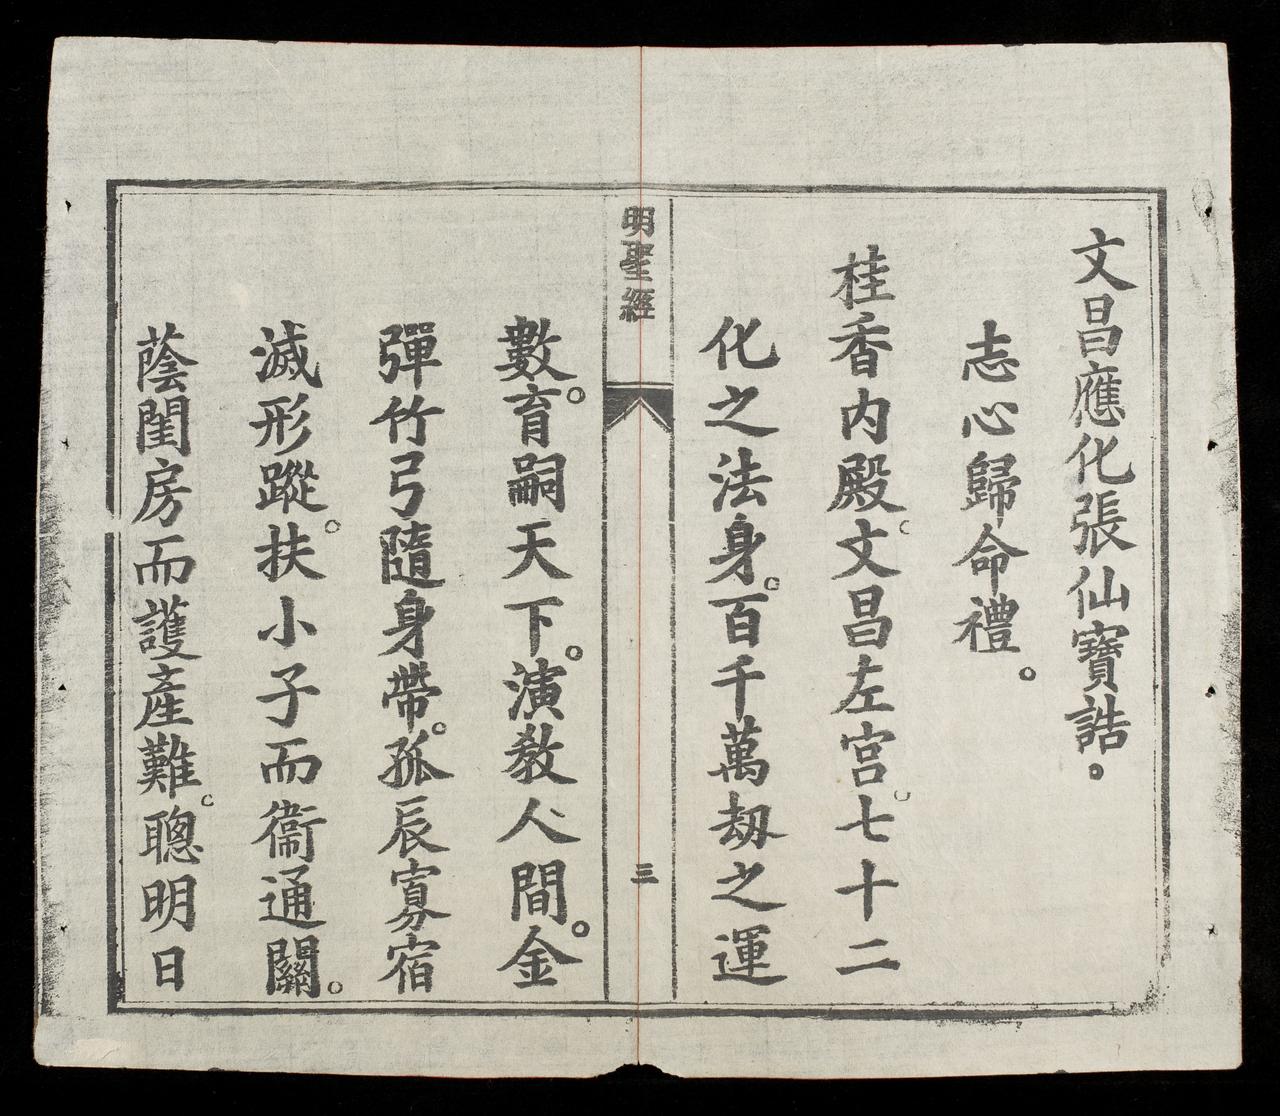 文昌應化張仙寶誥。
志心歸命禮。
桂香内殿。文昌左宮。七十二
化之法身。百千萬劫之運
明聖經
三
數。育嗣天下。演教人間。金
彈竹弓隨身帶。孤辰寡宿
滅形蹤。扶小子而衞通關。
蔭閨房而護產難。聰明日